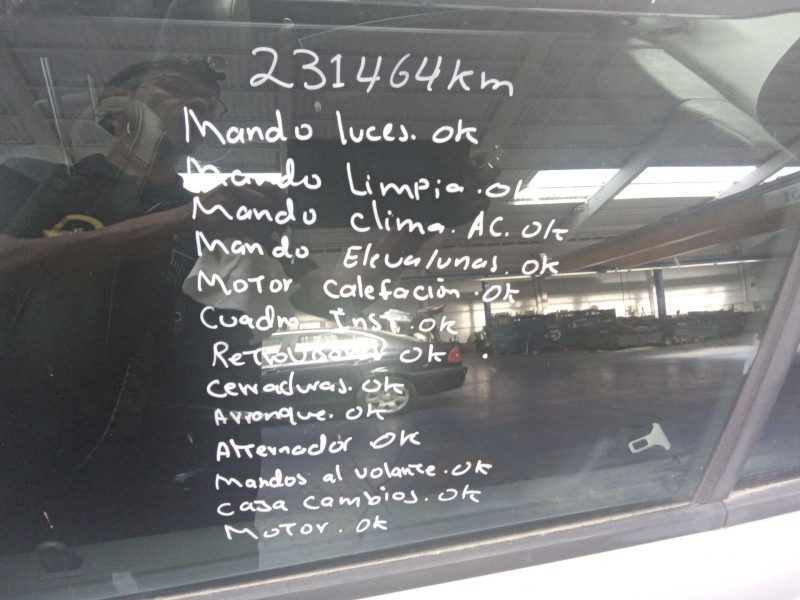 231464km
Mando luces. ok
Mando Limpia. ok
Mando clima. AC. ok
Mando Elevalunas. ok
Motor calefación. ok
Cuadro Inst. ok
Retrovisor ok.
Cerraduras. ok
Arranque. ok
Alternador ok
Mandos al volante. ok
Caja cambios. ok
Motor. ok